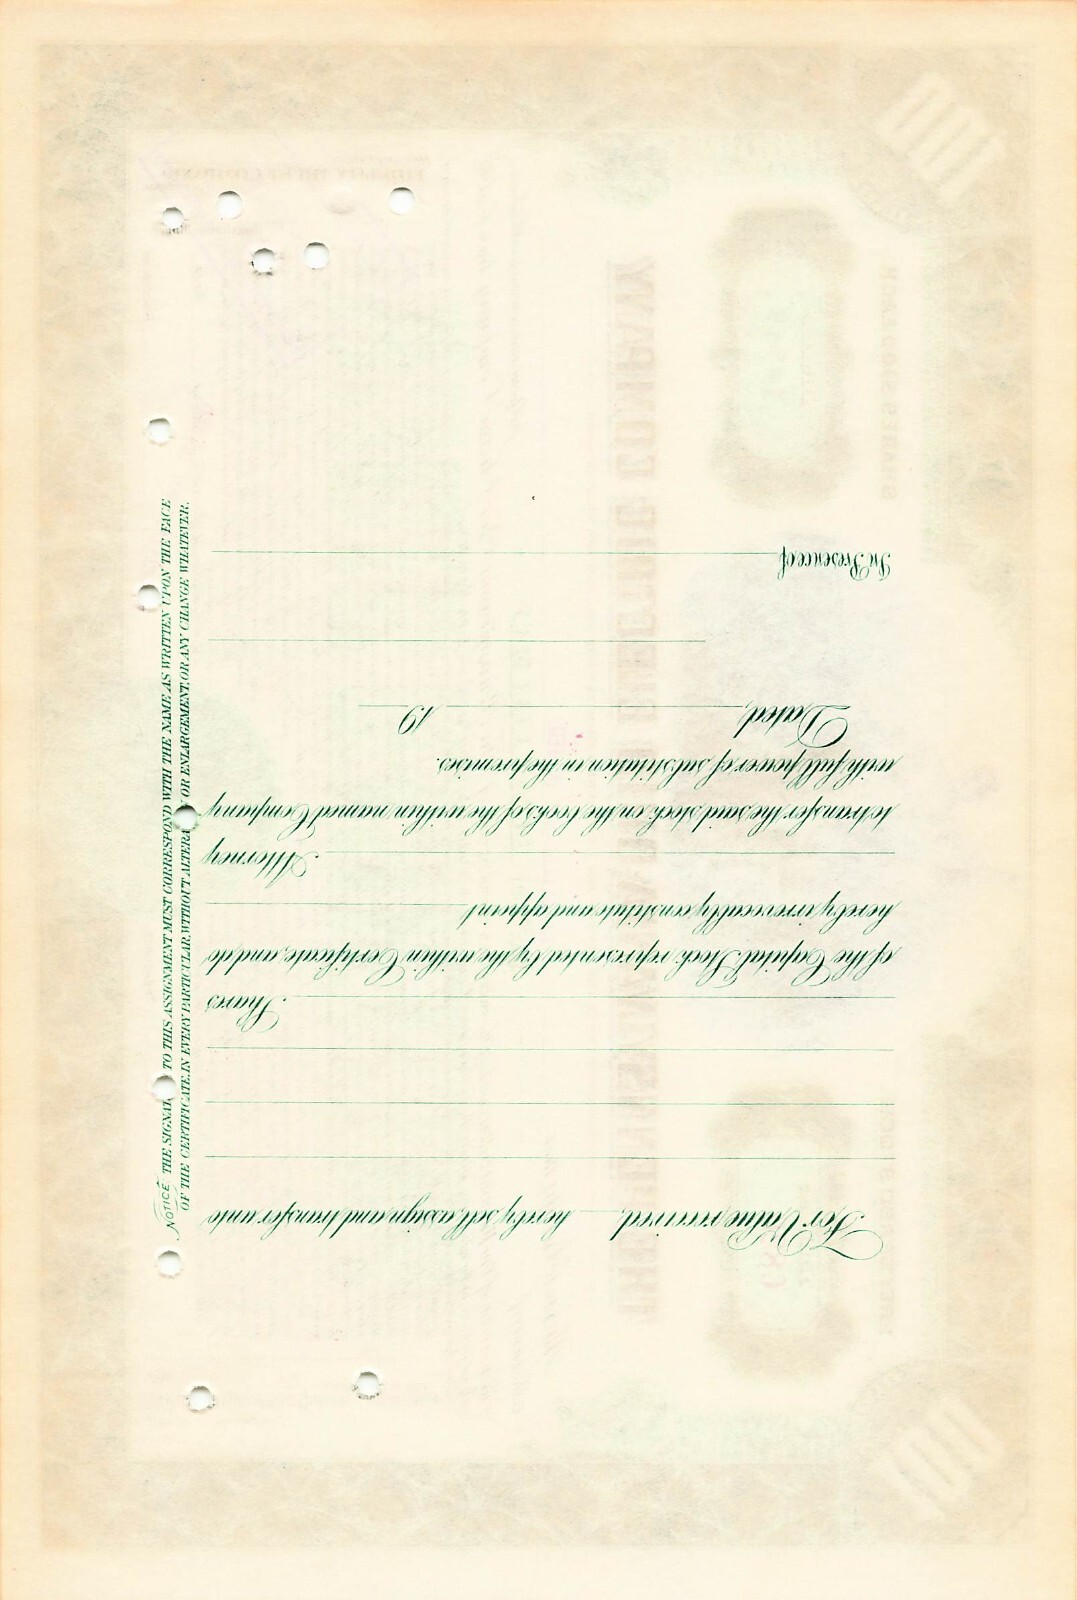 For Value received, hereby sell, assign and transfer unto
Shares
of the Capital Stock represented by the within Certificate, and do
hereby irrevocably constitute and appoint
Attorney
to transfer the said stock on the books of the within named Company
with full power of substitution in the premises.
Dated, 19
In Presence of
NOTICE THE SIGNA TO THIS ASSIGNMENT MUST CORRESPOND WITH THE NAME AS WRITTEN UPON THE FACE
OF THE CERTIFICATE, IN EVERY PARTICULAR, WITHOUT ALTERA OR ENLARGEMENT, OR ANY CHANGE WHATEVER.